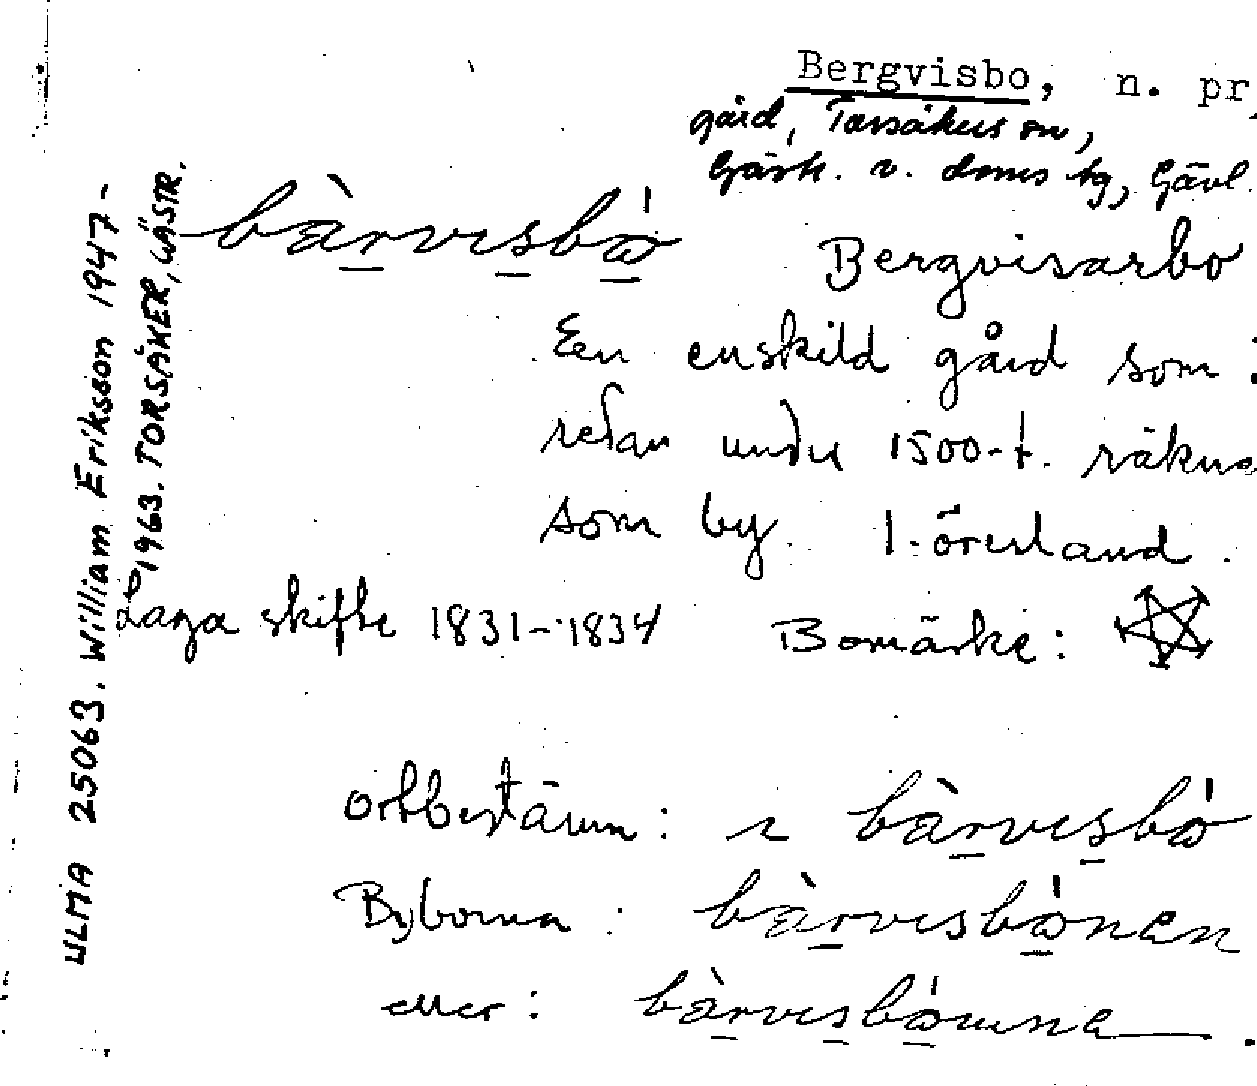 Bergvisbo, n. pr.
gård, Torsåkers sn,
Gästr. v. doms tg, Gävl.
bàrvisbò
Bergvisarbo
En enskild gård som i
redan under 1500-t. räkna
som by. 1 öresland.
Laga skifte 1831-1834 Bomärke:
ortbestämn: i bàrvisbò
Byborna: bàrvisbònen
eller: bàrvisbòarna.
ULMA 25063. William Eriksson 1947-
1963. TORSÅKER, GÄSTR.